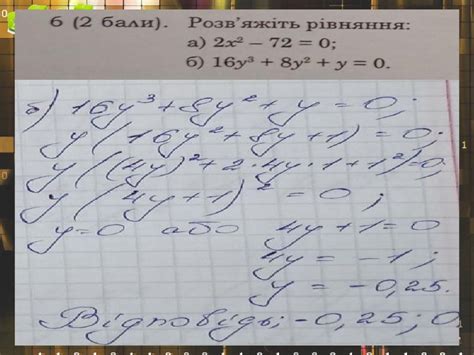 6 (2 бали). Розв'яжіть рівняння:
а) 2x² – 72 = 0;
б) 16y³ + 8y² + y = 0.
б) 16y³ + 8y² + y = 0;
y(16y² + 8y + 1) = 0;
y((4y)² + 2·4y·1 + 1²) = 0;
y(4y + 1)² = 0;
y = 0 або 4y + 1 = 0
4y = -1;
y = -0,25.
Відповідь: -0,25; 0